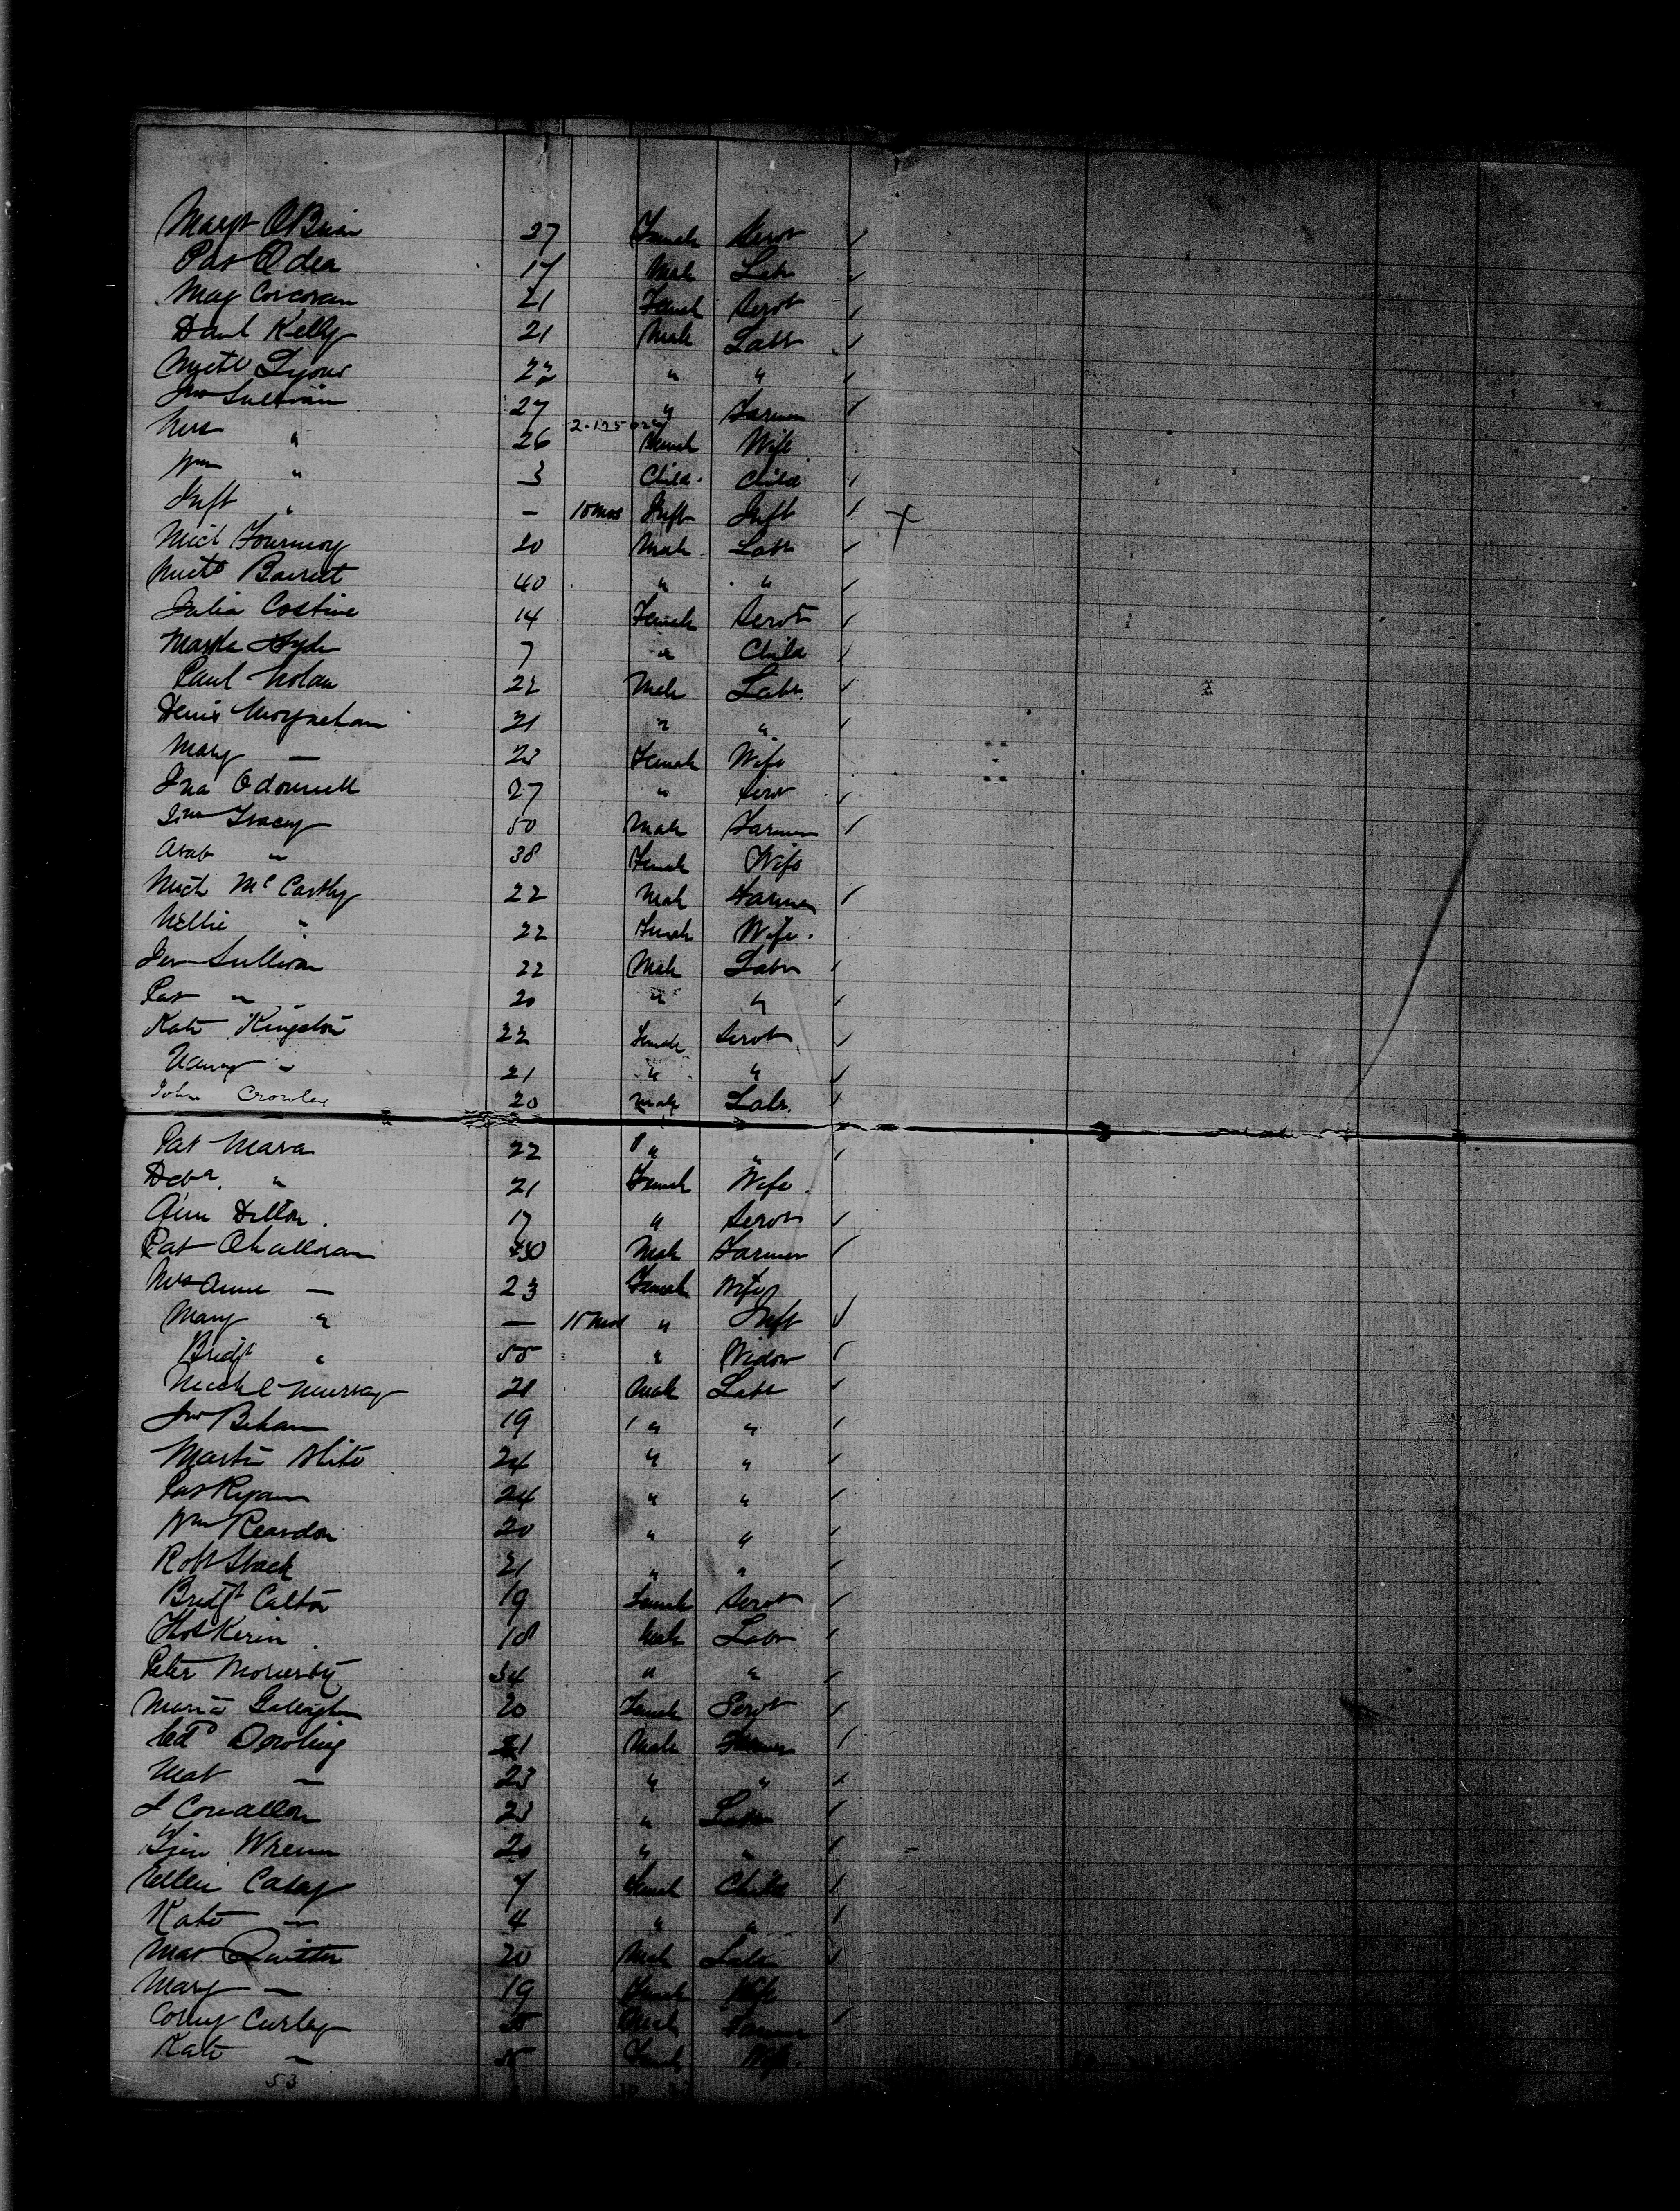 Margt OBrien 27 Female Servt
Pat Odea 17 Male Labr
Mag Corcoran 21 Female Servt
Danl Kelly 21 Male Labr
Michl Lyons 22 " "
Jno Sullivan 27 " Farmer
Mrs " 26 Female Wife
Wm " 3 Child. Child
Inft " — 10 mos Inft Inft
Mich 20 Male Labr
Michl Barrett 40 " "
Julia Costine 14 Female Servt
Martha Hyde 7 " Child
Paul Nolan 22 Male Labr.
Denis Moynehan 21 " "
Mary — 23 Female Wife
Ina Odonnell 27 " Servt
Jno Tracey 50 Male Farmer
" 38 Female Wife
Mich McCarthy 22 Male Farmer
Nellie " 22 Female Wife.
Jer Sullivan 22 Male Labr
Pat " 20 " "
Kate Kingston 22 Female Servt
" 21 " "
John Crowley 20 Male Labr.
Pat Mara 22 " "
Debr. " 21 Female Wife.
Ann Dillon. 17 " Servt
Pat Ohalloran 30 Male Farmer
Mrs Anne — 23 Female Wife
Mary " — 15 mos " Inft
Bridgt " 55 " Widow
Michl Murray 21 Male Labr
Jno Behan 19 " "
Martin 24 " "
Pat Ryan 24 " "
Wm Reardon 20 " "
Robt Stack 21 " "
Bridgt Calton 19 Female Servt
Thos Kerin 18 Male Labr
Peter Moriarty 34 " "
Maria Gallagher 20 Female Servt
Dowling 21 Male Farmer
Mat — 23 " "
23 " Labr
Wrenn 20 " "
Ellen Casey 7 Female Child
Kate — 4 " "
Mat Quitter 20 Male Labr
Mary — 19 Female Wife
Curley Male Farmer
Kate — Female Wife.
53